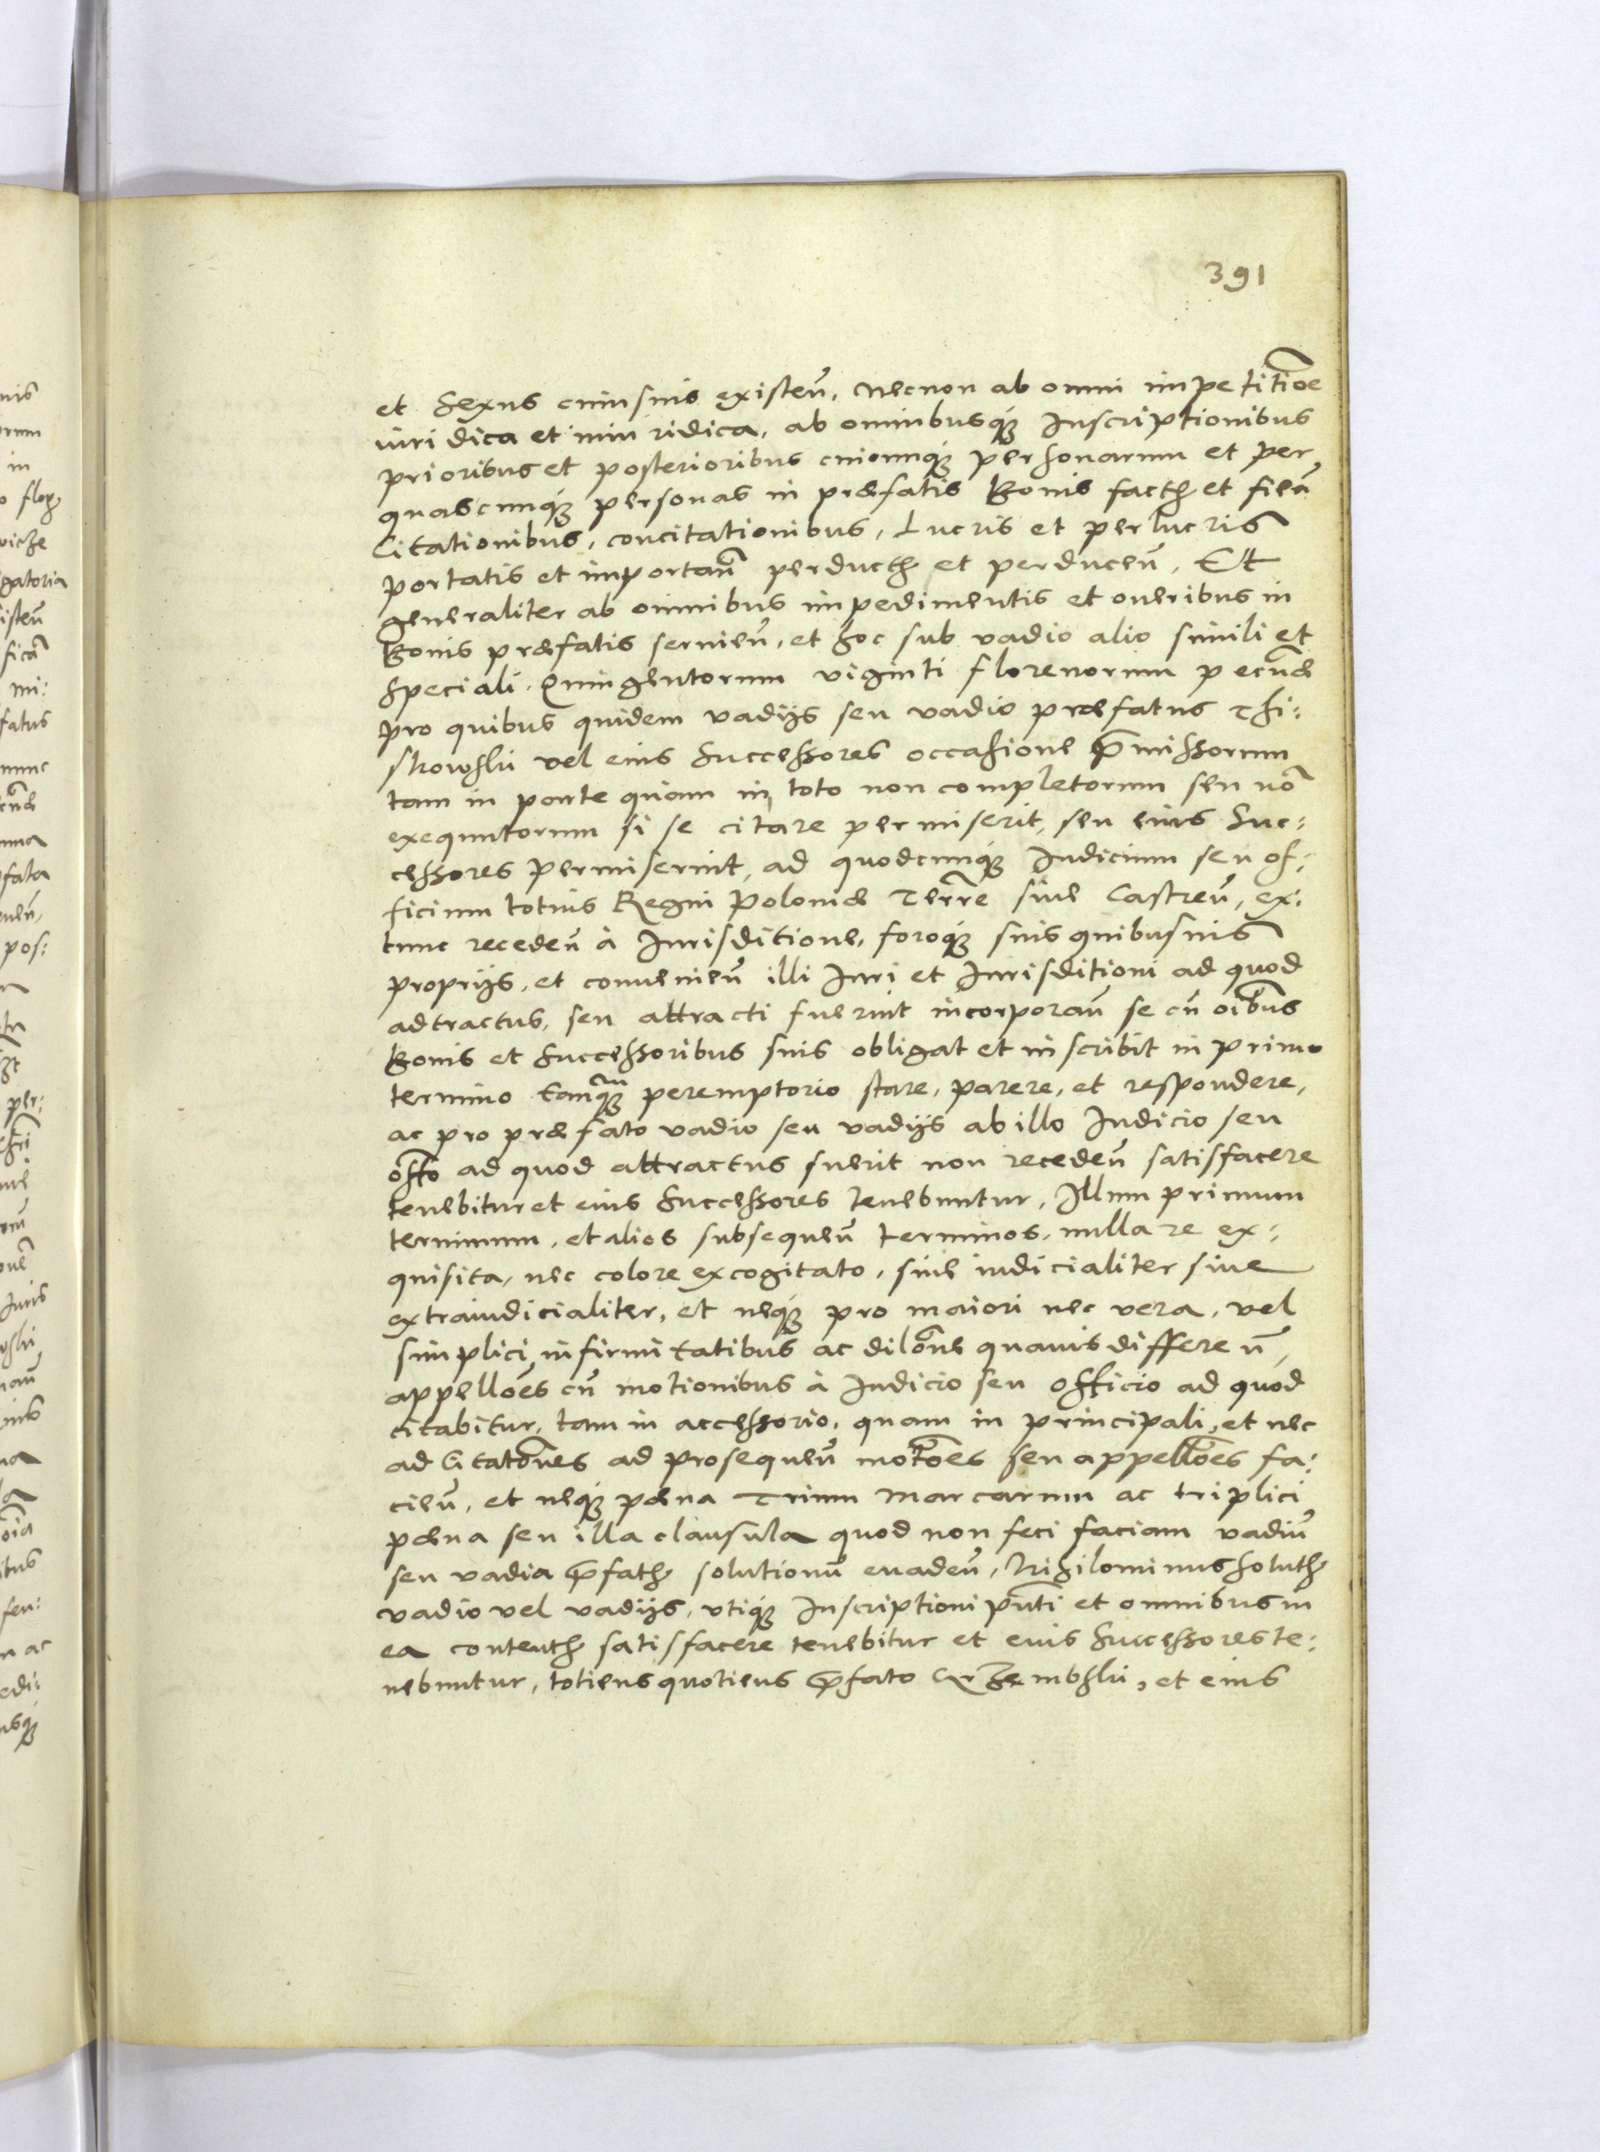 391
et sexus cuiusuis existeñ, necnon ab omni impetitiõe
iuridica et iniuridica, ab omnibusq̃ Inscriptionibus
prioribus et posterioribus cuiuiuscunq̃ personarum et per
quascunq̃ personas in præfatis Bonis facth et fieã
Citationibus, concitationibus, Lucris et perlucris
portatis et importañ perducth et perduceñ, Et
generaliter ab omnibus impedimentis et oneribus in
Bonis præfatis serueñ, et hoc sub vadio alio simili et
speciali Quingentorum viginti florenorum pecuñæ
pro quibus quidem vadijs seu vadio præfatus Thi:
skowski vel eius Successores occasione p̃missorum
tam in parte quam in toto non completorum seu nõ
exequutorum si se citare permiserit, seu eius Suc:
cessores permiserint, ad quodcunq̃ Iudicium seu of:
ficium totius Regni Poloniæ Terr̃e siue Castreñ, ex:
tunc recedeñ à Iurisditione, foroq̃ suis quibusuis
proprijs, et conueniẽn illi Iuri et Iurisditioni ad quod
adtractus, seu attracti fuerint incorporañ se cũ oĩbus
Bonis et Successoribus suis obligat et inscribit in primo
termino tanq̃ peremptorio stare, parere, et respondere,
ac pro præfato vadio seu vadijs ab illo Iudicio seu
offõ ad quod attractus fuerit non recedeñ satisfacere
tenebitur et eius Successores tenebuntur, Illum primum
terminum, et alios subsequeñ terminos, nulla re ex:
quisita, nec colore excogitato, siue iudicialiter siue
extraiudicialiter, et neq̃ pro maiori nec vera, vel
simplici infirmitatibus ac dilõne quauis differeñ,
appellões cũ motionibus à Iudicio seu Officio ad quod
citabitur, tam in accessorio, quam in principali, et nec
ad Citatõnes ad prosequeñ motões seu appellões fa:
cieñ, et neq̃ pæna Trium Marcarum ac triplici
pæna seu illa clausula quod non feci faciam vadiũ
seu vadia p̃fath solutionũ euadeñ, Nihilominus soluth
vadio vel vadijs, vtiq̃ Inscriptioni p̃nti et omnibus in
ea contenth satisfacere tenebitur et eius Successores te:
nebuntur, totiens quotiens p̃fato Krzembski, et eius